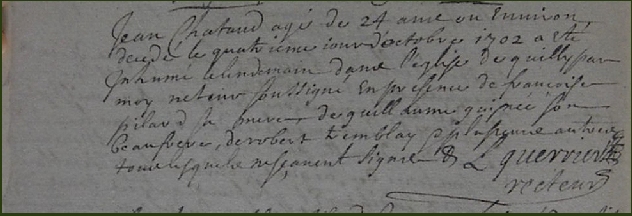 Jean Chataud agé de 24 ans ou Environ
decedé le quatrieme jour d'octobre 1702 a eté
Inhumé le lendemain dans l'église de quilly par
moy recteur soussigné En presence de francoise
pilard sa mere, de guillaume guinée son
beaufrere, de robert tremblay & plusieurs autres
tous lesquels ne sçavent signer
L querruer
recteur